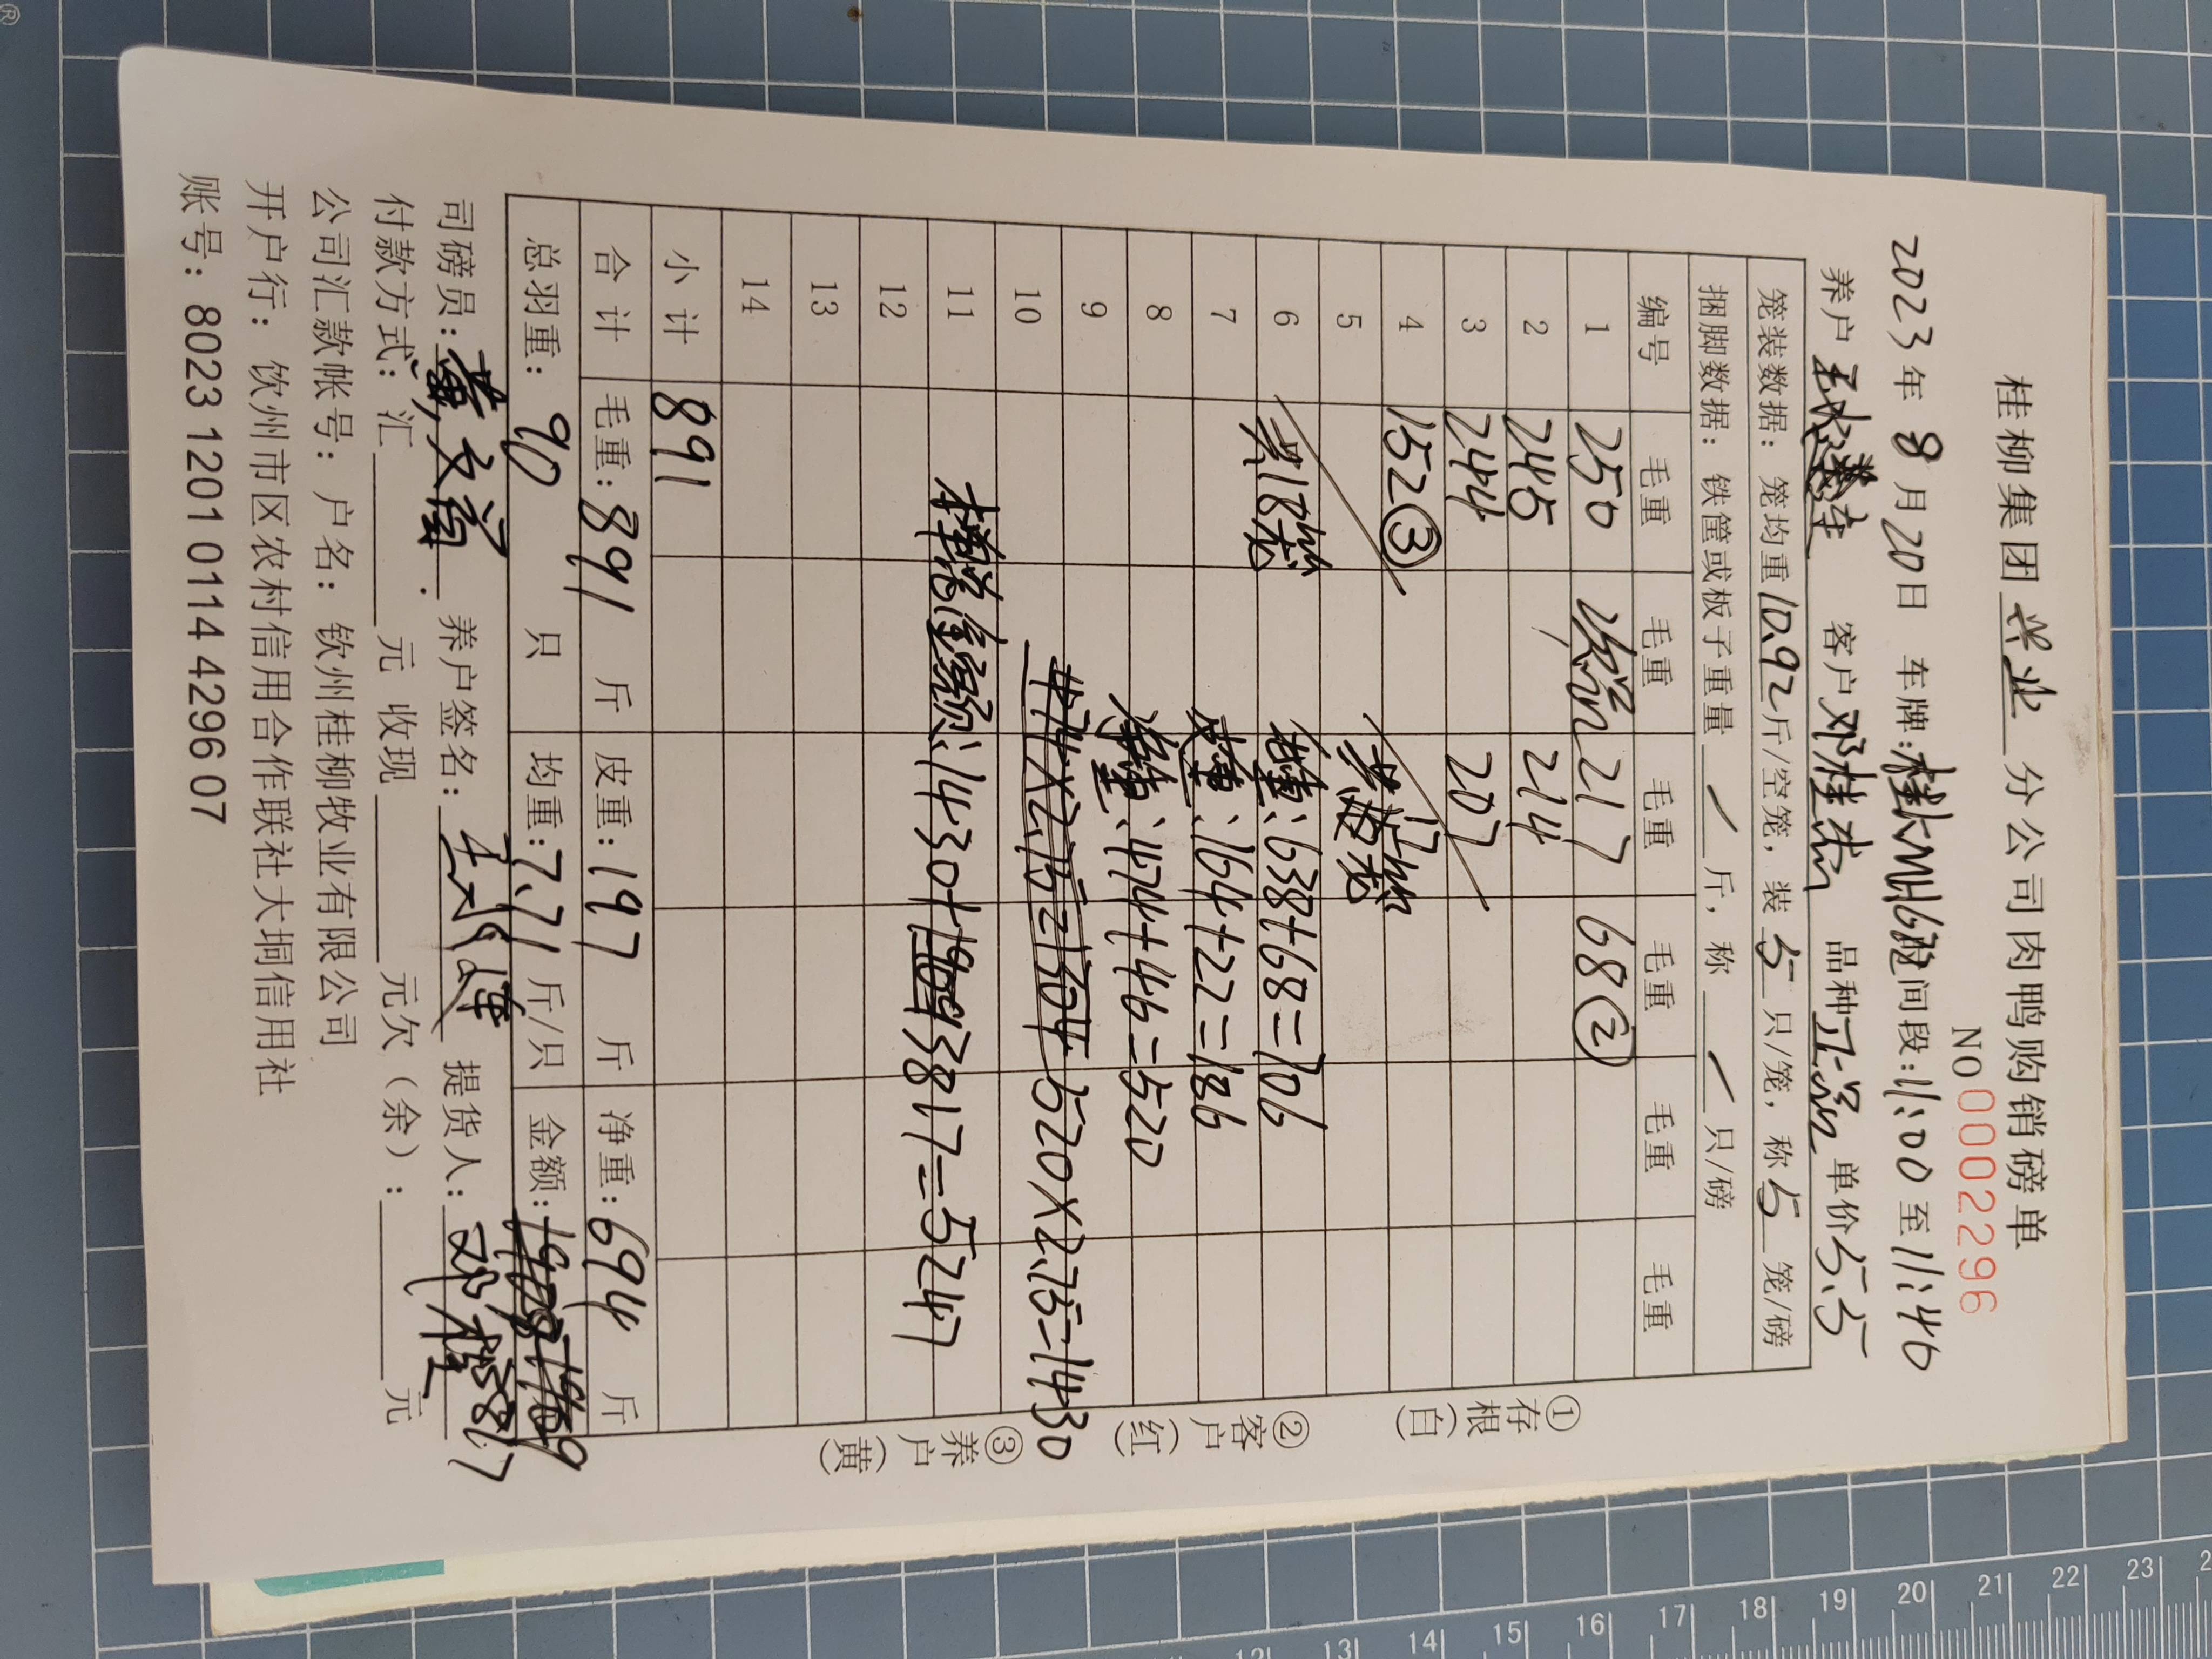 桂柳集团兴业分公司肉鸭购销磅单
NO 0002296
2023年8月20日 车牌:桂 时间段:11:00至11:46
养户 客户邓桂杰 品种正品 单价5.5
笼装数据: 笼均重10.92斤/空笼, 装5只/笼, 称5笼/磅
捆脚数据: 铁筐或板子重量 / 斤, 称 / 只/磅
编号 毛重 毛重 毛重 毛重 毛重 毛重
1 250 次品 217 68②
2 245 214
3 244 207
4 152③
5 共17笼
6 共18笼 毛重:638+68=706
7 皮重:164+22=186
8 净重:474+46=520
9
10 520×2.75=1430
11 样总金额:1430+3817=5247
12
13
14
小计 891
合计 毛重:891斤 皮重:197斤 净重:694斤
总羽重: 90只 均重:7.71斤/只 金额:3817
司磅员: 黄文 养户签名: 提货人: 邓桂
付款方式: 汇 元 收现 元欠(余): 元
公司汇款帐号: 户名: 钦州桂柳牧业有限公司
开户行: 钦州市区农村信用合作联社大垌信用社
账号: 8023 1201 0114 4296 07
①存根(白)
②客户(红)
③养户(黄)